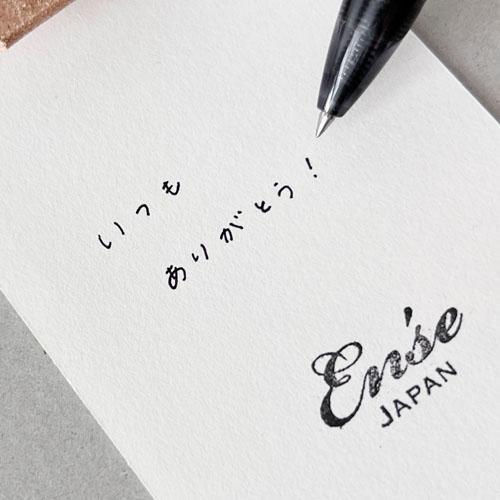 いつも
ありがとう！
En'se
JAPAN